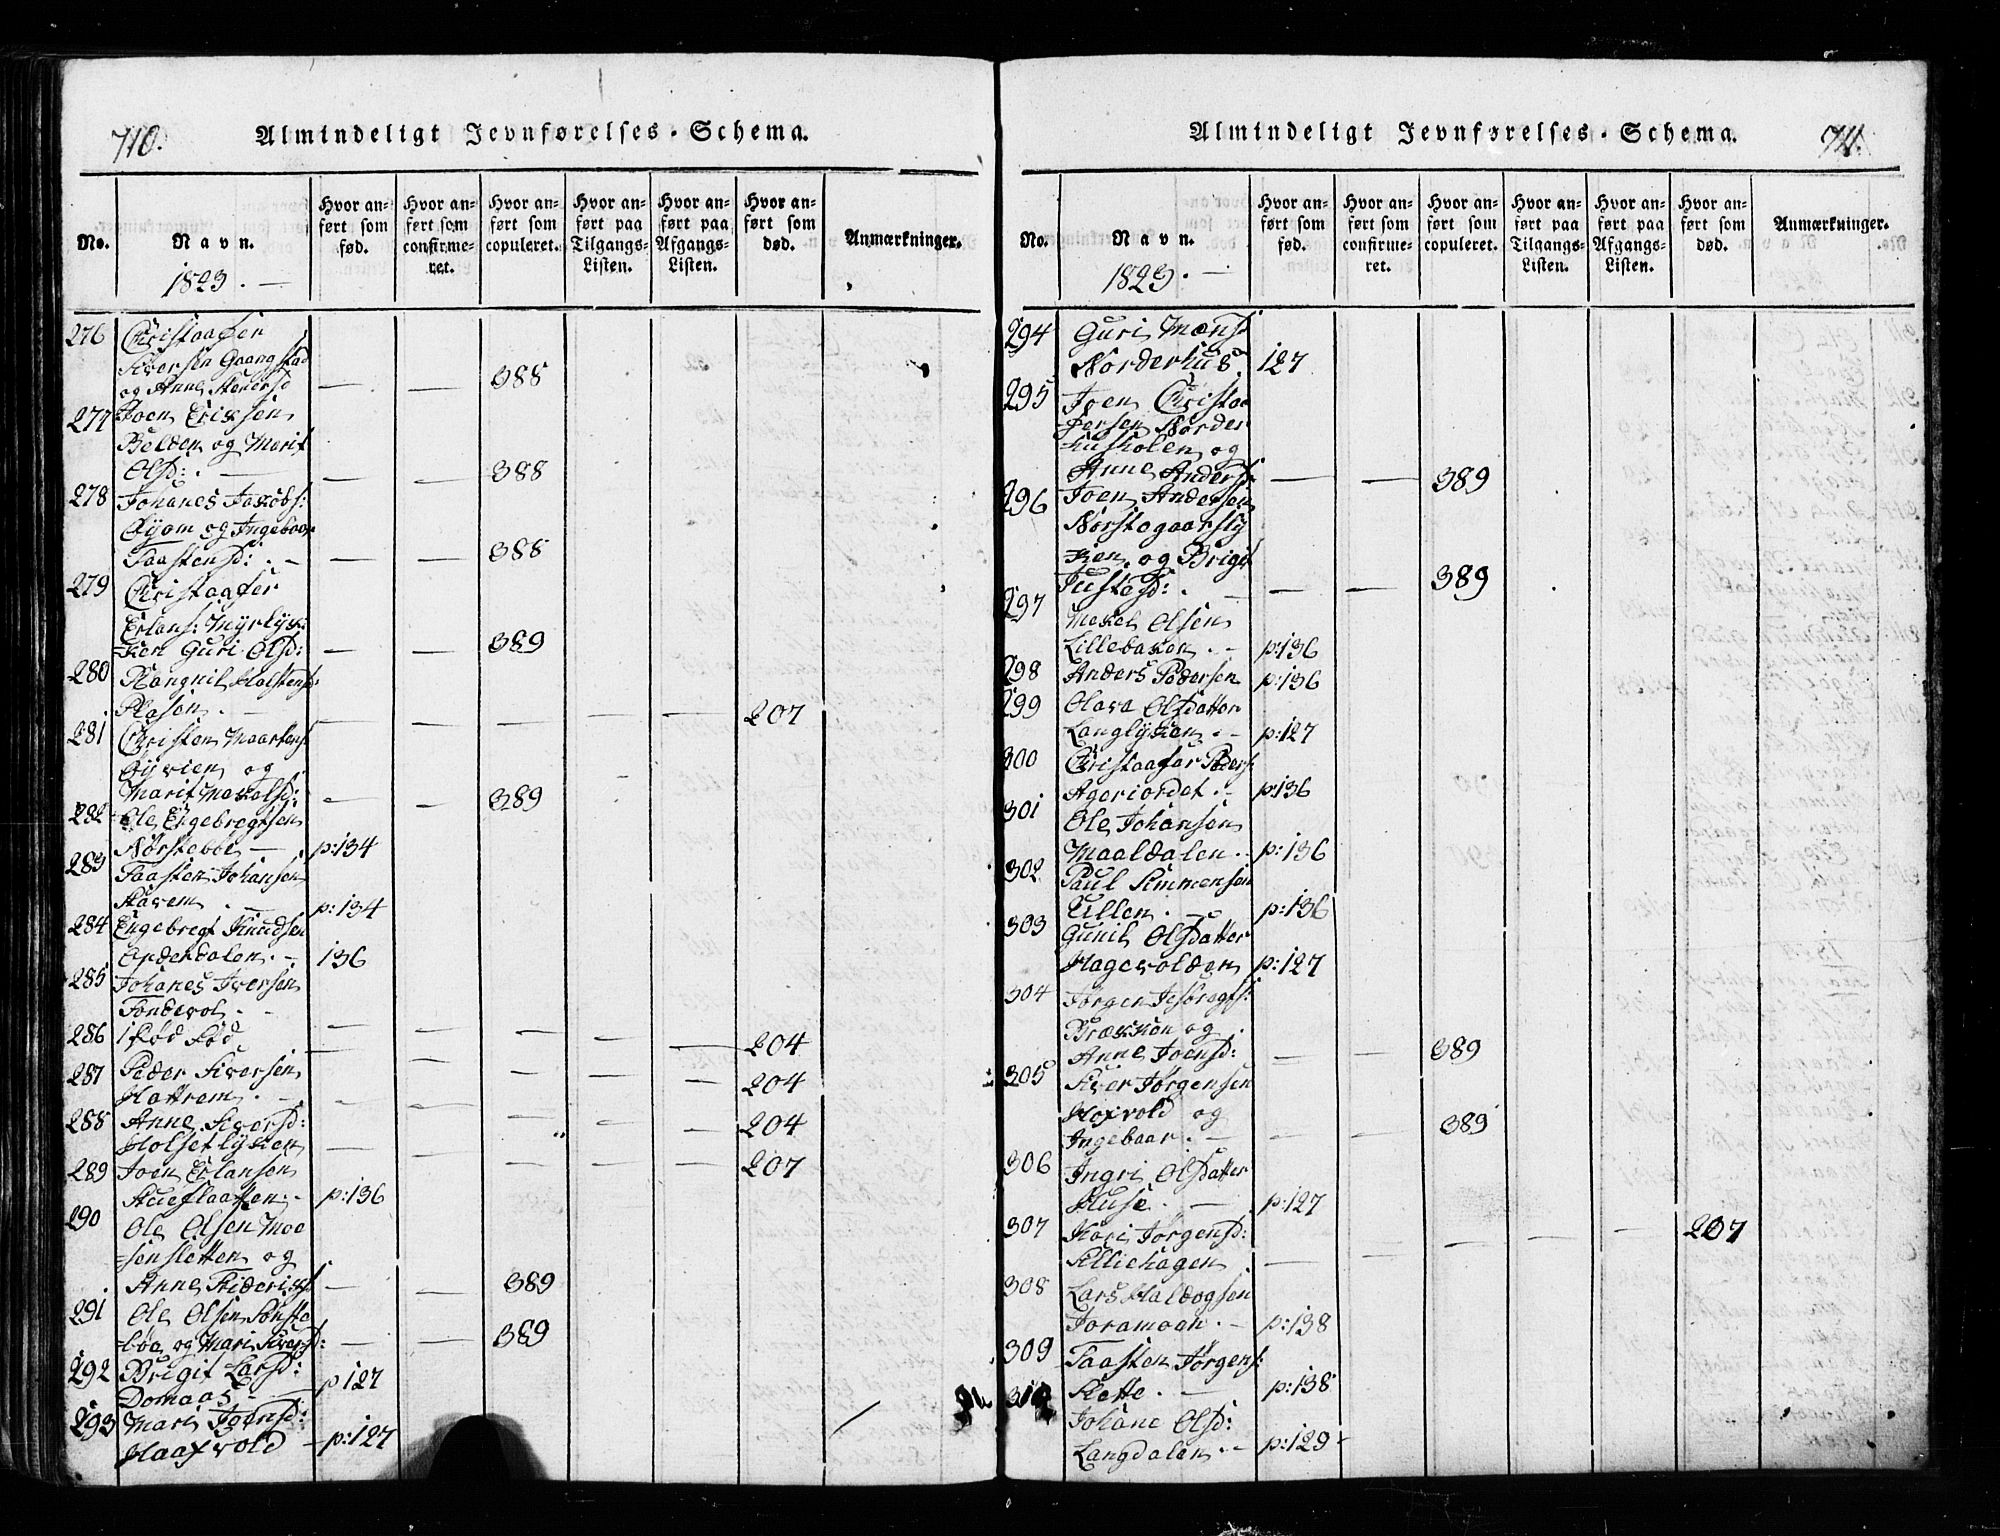 710.
Almindeligt Jevnførelses-Schema.
No.
Navn.
1823.
Hvor an-
ført som
fød.
Hvor an-
ført som
confirme-
ret.
Hvor an-
ført som
copuleret.
Hvor an-
ført paa
Tilgangs-
Listen.
Hvor an-
ført paa
Afgangs-
Listen.
Hvor an-
ført som
død.
Anmærkninger.
276 Christaafer
Siversen Gaangstad
og Anne Siversd — — 388
277 Joen Erixsen
Belden og Marit
Olsd: — — 388
278 Johanes Jakobs:
Øyom og Ingebaar
Taastensd: — — 388
279 Christaafer
Erlans: Myrlyk-
ken Guri Olsd: — — 389
280 Rangnil Holstensd:
Plasen — — — — — 207
281 Christen Maartens
Øyvien og
Marit Mekelsd: — — 389
282 Ole Engebregtsen
Norsteboe — p:134
283 Taasten Johansen
Stavem — p:134
284 Engebregt Knudsen
Enderdalen — 136
285 Johanes Iversen
Tondevol — — — — — 204
286 1 Død Fød — — — — — 204
287 Peder Siversen
Hattrem — — — — — 204
288 Anne Siversd:
Holsetlykken — — — — — 207
289 Joen Erlansen
Stueflaatten p:136
290 Ole Olsen Moe
-senslètten og
Anne Friderixs — — 389
291 Ole Olsen Sonste
bøe og Mari Siversd: — — 389
292 Brigit Larsd:
Domaas — p127
293 Mari Joensd:
Haaxvold — p:127
711.
Almindeligt Jevnførelses-Schema.
No.
Navn.
1823.
Hvor an-
ført som
fød.
Hvor an-
ført som
confirme-
ret.
Hvor an-
ført som
copuleret.
Hvor an-
ført paa
Tilgangs-
Listen.
Hvor an-
ført paa
Afgangs-
Listen.
Hvor an-
ført som
død.
Anmærkninger.
294 Guri Monsd
Norderhus 127
295 Joen Christaa
fersen Norder
husholen og
Anne Andersd: — — 389
296 Joen Andersen
Norstegaarsly
ken og Brigit
Justesd: — — 389
297 Mekel Olsen
Lillebaken p:136
298 Anders Pedersen p:136
299 Olava Olsdatter
Langlykken p:127
300 Christaafar Peders:
Ageriordet p:136
301 Ole Johansen
Maaldalen p:136
302 Paul Simmensen
Ullen p:136
303 Gunil Olsdatter
Hagevolden p:127
304 Jørgen Jesbregts:
Brækken og
Anne Joensd: — — 389
305 Siver Jørgensen
Hoxvold og
Ingebaar — — 389
306 Ingri Olsdatter
Huse — p:127
307 Kari Jørgensd:
Selliehagen — — — — — 207
308 Lars Haldogsen
Joramoen p:138
309 Taasten Jørgens:
Slette — p:138
310 Johane Olsd:
Langdalen p:129